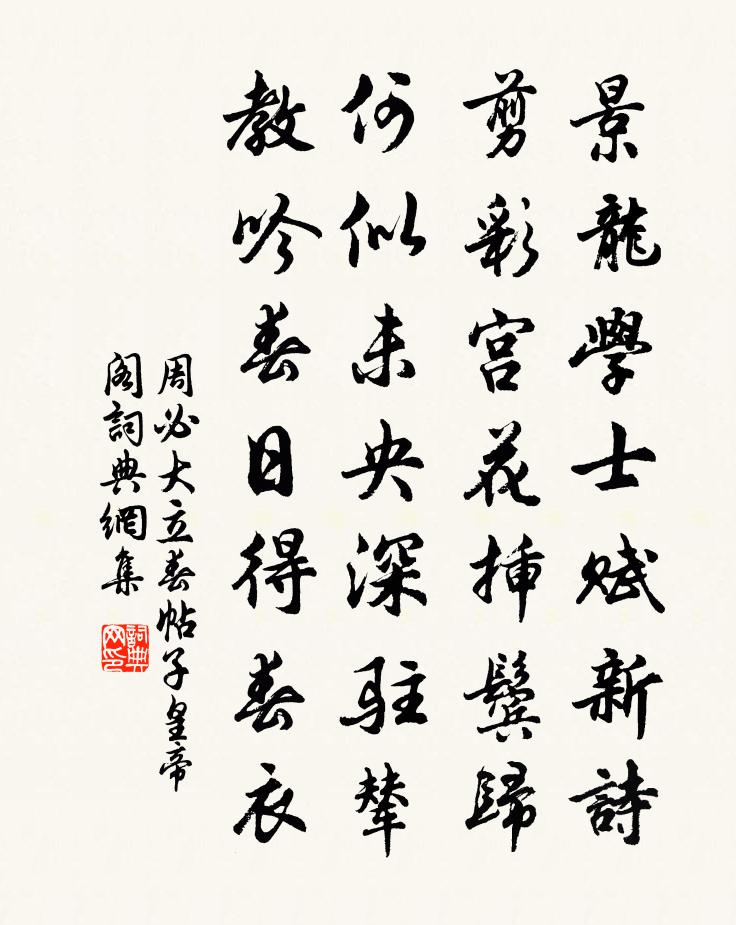 景龍學士賦新詩
剪彩宮花揷鬢歸
何似未央深駐輦
教吟春日得春衣
周必大立春帖子皇帝
閣詞典網集
詞典
网印